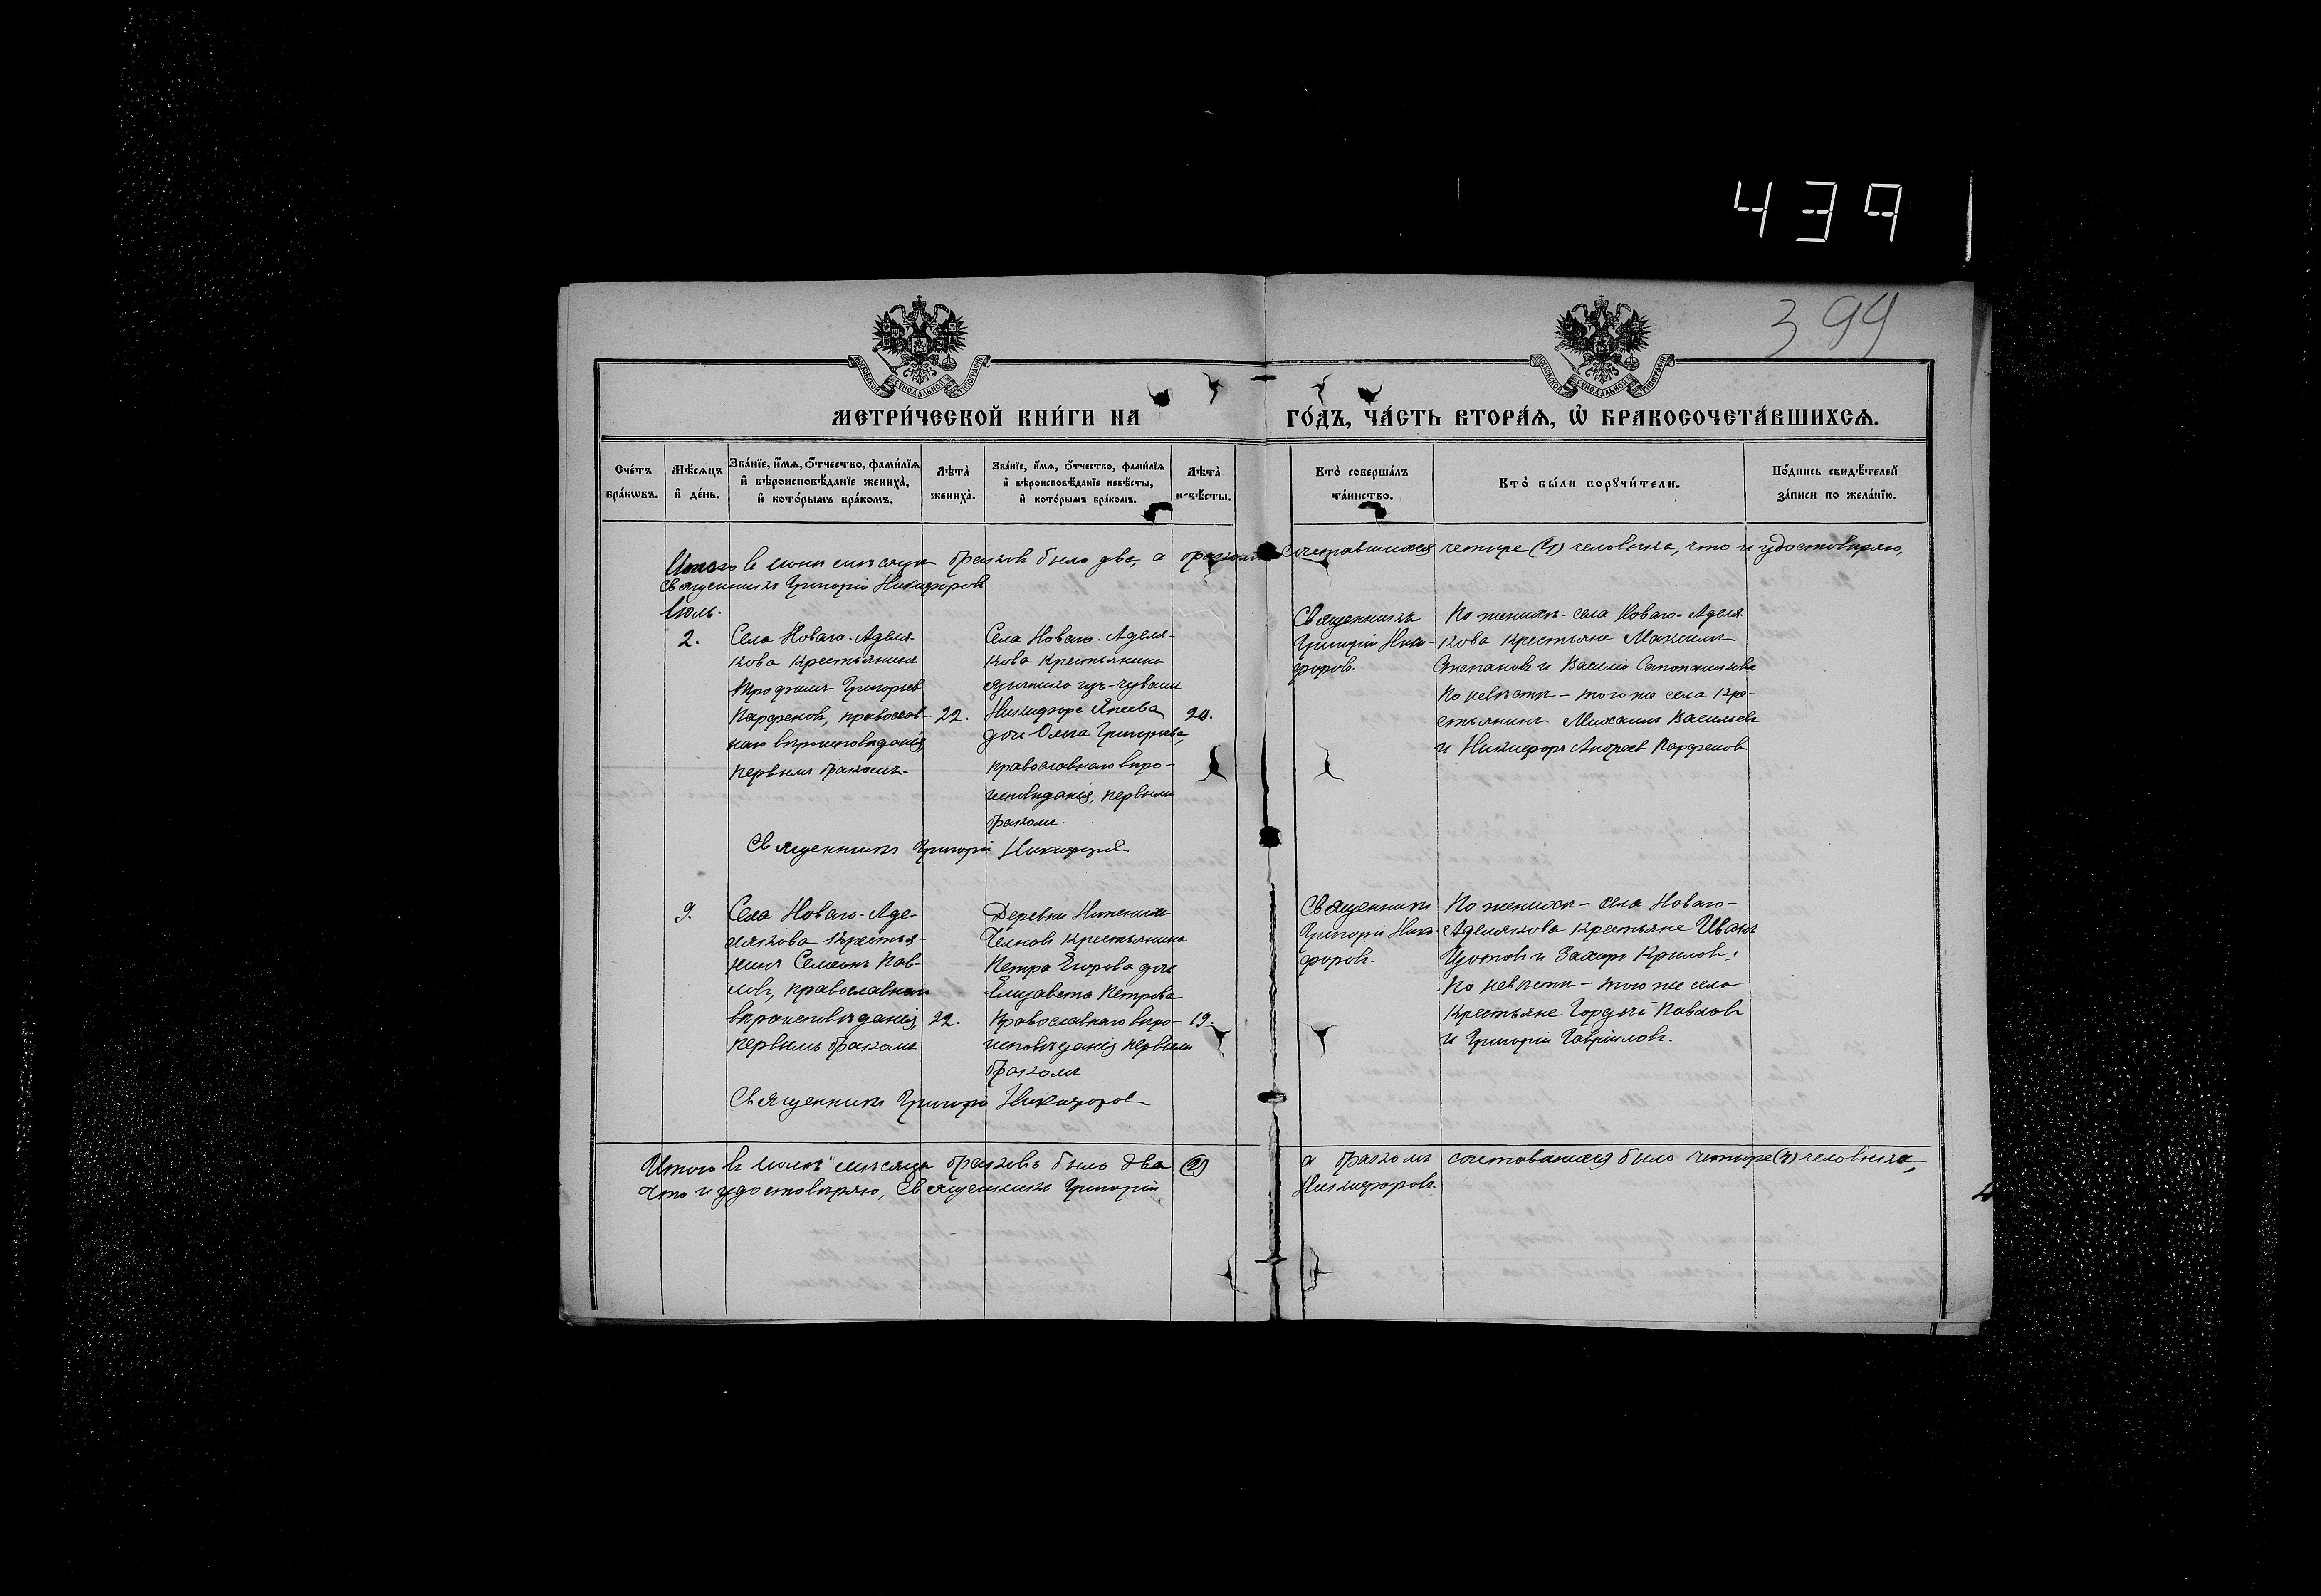 439
399
МЕТРИ́ЧЕСКОЙ КНИ́ГИ НА
ГО́ДЪ, ЧА́СТЬ ВТОРА́Ѧ, Ѡ҆ БРАКОСОЧЕТА́ВШИХСѦ.
Сче́тъ бра́кѡвъ.
Мѣ́сѧцъ и҆ де́нь.
Зва́нїе, и҆́мѧ, ѻ҆́тчество, фами́лїѧ и҆ вѣроисповѣ́данїе жениха̀, и҆ кото́рымъ бра́комъ.
Лѣта̀ жениха̀.
Зва́нїе, и҆́мѧ, ѻ҆́тчество, фами́лїѧ и҆ вѣроисповѣ́данїе невѣ́сты, и҆ кото́рымъ бра́комъ.
Лѣта̀ невѣ́сты.
Кто̀ соверша́лъ та́инство.
Кто̀ бы́ли порꙋчи́тели.
По́дпись свидѣ́телей за́писи по жела́нїю.
Итого в июнѣ мѣсяцѣ браков было два, а браком сочетавшихся четыре (4) человѣка, что и удостовѣряю,
Священникъ Григорій Никифоровъ
Июль.
2.
Села Новаго-Аделя-
кова крестьянинъ
Трофимъ Григорьев
Парфенов, православ-
наго вѣроисповѣданія,
первымъ бракомъ.
22.
Села Новаго-Аделя-
кова крестьянина
язычника изъ-чувашъ
Никифора
дочь Ольга Григорьева,
православнаго вѣро-
исповѣданія, первымъ
бракомъ.
20.
Священникъ
Григорій Ники-
форовъ.
По женихѣ - села Новаго-Аделя-
кова крестьяне Максимъ
Степановъ и Василій
По невѣстѣ - того же села кре-
стьянинъ Михаилъ Васильевъ
и Никифоръ Андреев Парфеновъ
Священникъ Григорій Никифоров
9.
Села Новаго-Аде-
лякова крестья-
нинъ Семенъ Пав-
ловъ, православнаго
вѣроисповѣданія,
первымъ бракомъ
22.
Деревни Нижнихъ
Челновъ крестьянина
Петра Егорова дочь
Елизавета Петрова
православнаго вѣро-
исповѣданія первымъ
бракомъ
19.
Священникъ
Григорій Ники-
форовъ.
По женихѣ - села Новаго-
Аделякова крестьяне Иванъ
и Захаръ Крыловъ.
По невѣстѣ - того же села
крестьяне Гордѣй Павловъ
и Григорій Гавриловъ.
Священникъ Григорій Никифоров
Итого в июлѣ мѣсяцѣ браковъ было два (2) а бракомъ сочетовшихся было четыре (4) человѣка,
что и удостовѣряю, Священникъ Григорій Никифоровъ.